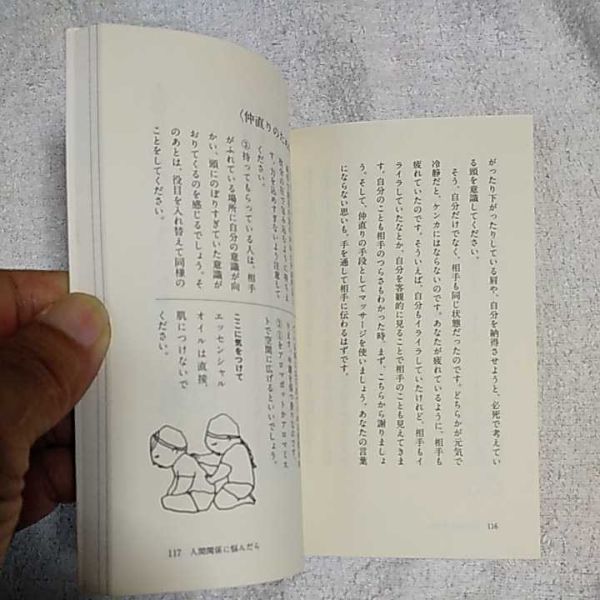 がったり下がったりしている肩や、自分を納得させようと、必死で考えてい
る頭を意識してください。
そう、自分だけでなく、相手も同じ状態だったのです。どちらかが元気で
冷静だと、ケンカにはならないのです。あなたが疲れているように、相手も
疲れていたのです。そういえば、自分もイライラしていたけれど、相手もイ
ライラしていたなとか、自分を客観的に見ることで相手のことも見えてきま
す。自分のことも相手のつらさもわかった時、まず、こちらから謝りましょ
う。そして、仲直りの手段としてマッサージを使いましょう。あなたの言葉
にならない思いも、手を通して相手に伝わるはずです。
116
〈仲直りのため
す。力を込めすぎないよう注意して
ください。
③持ってもらっている人は、相手
がふれている場所に自分の意識が向
かい、頭にのぼりすぎていた意識が
おりてくるのを感じるでしょう。そ
のあとは、役目を入れ替えて同様の
ことをしてください。
②①をアロマポットかアロマミス
トで空間に広げるといいでしょう。
ここに気をつけて
エッセンシャル
オイルは直接
肌につけないで
ください。
117 人間関係に悩んだら